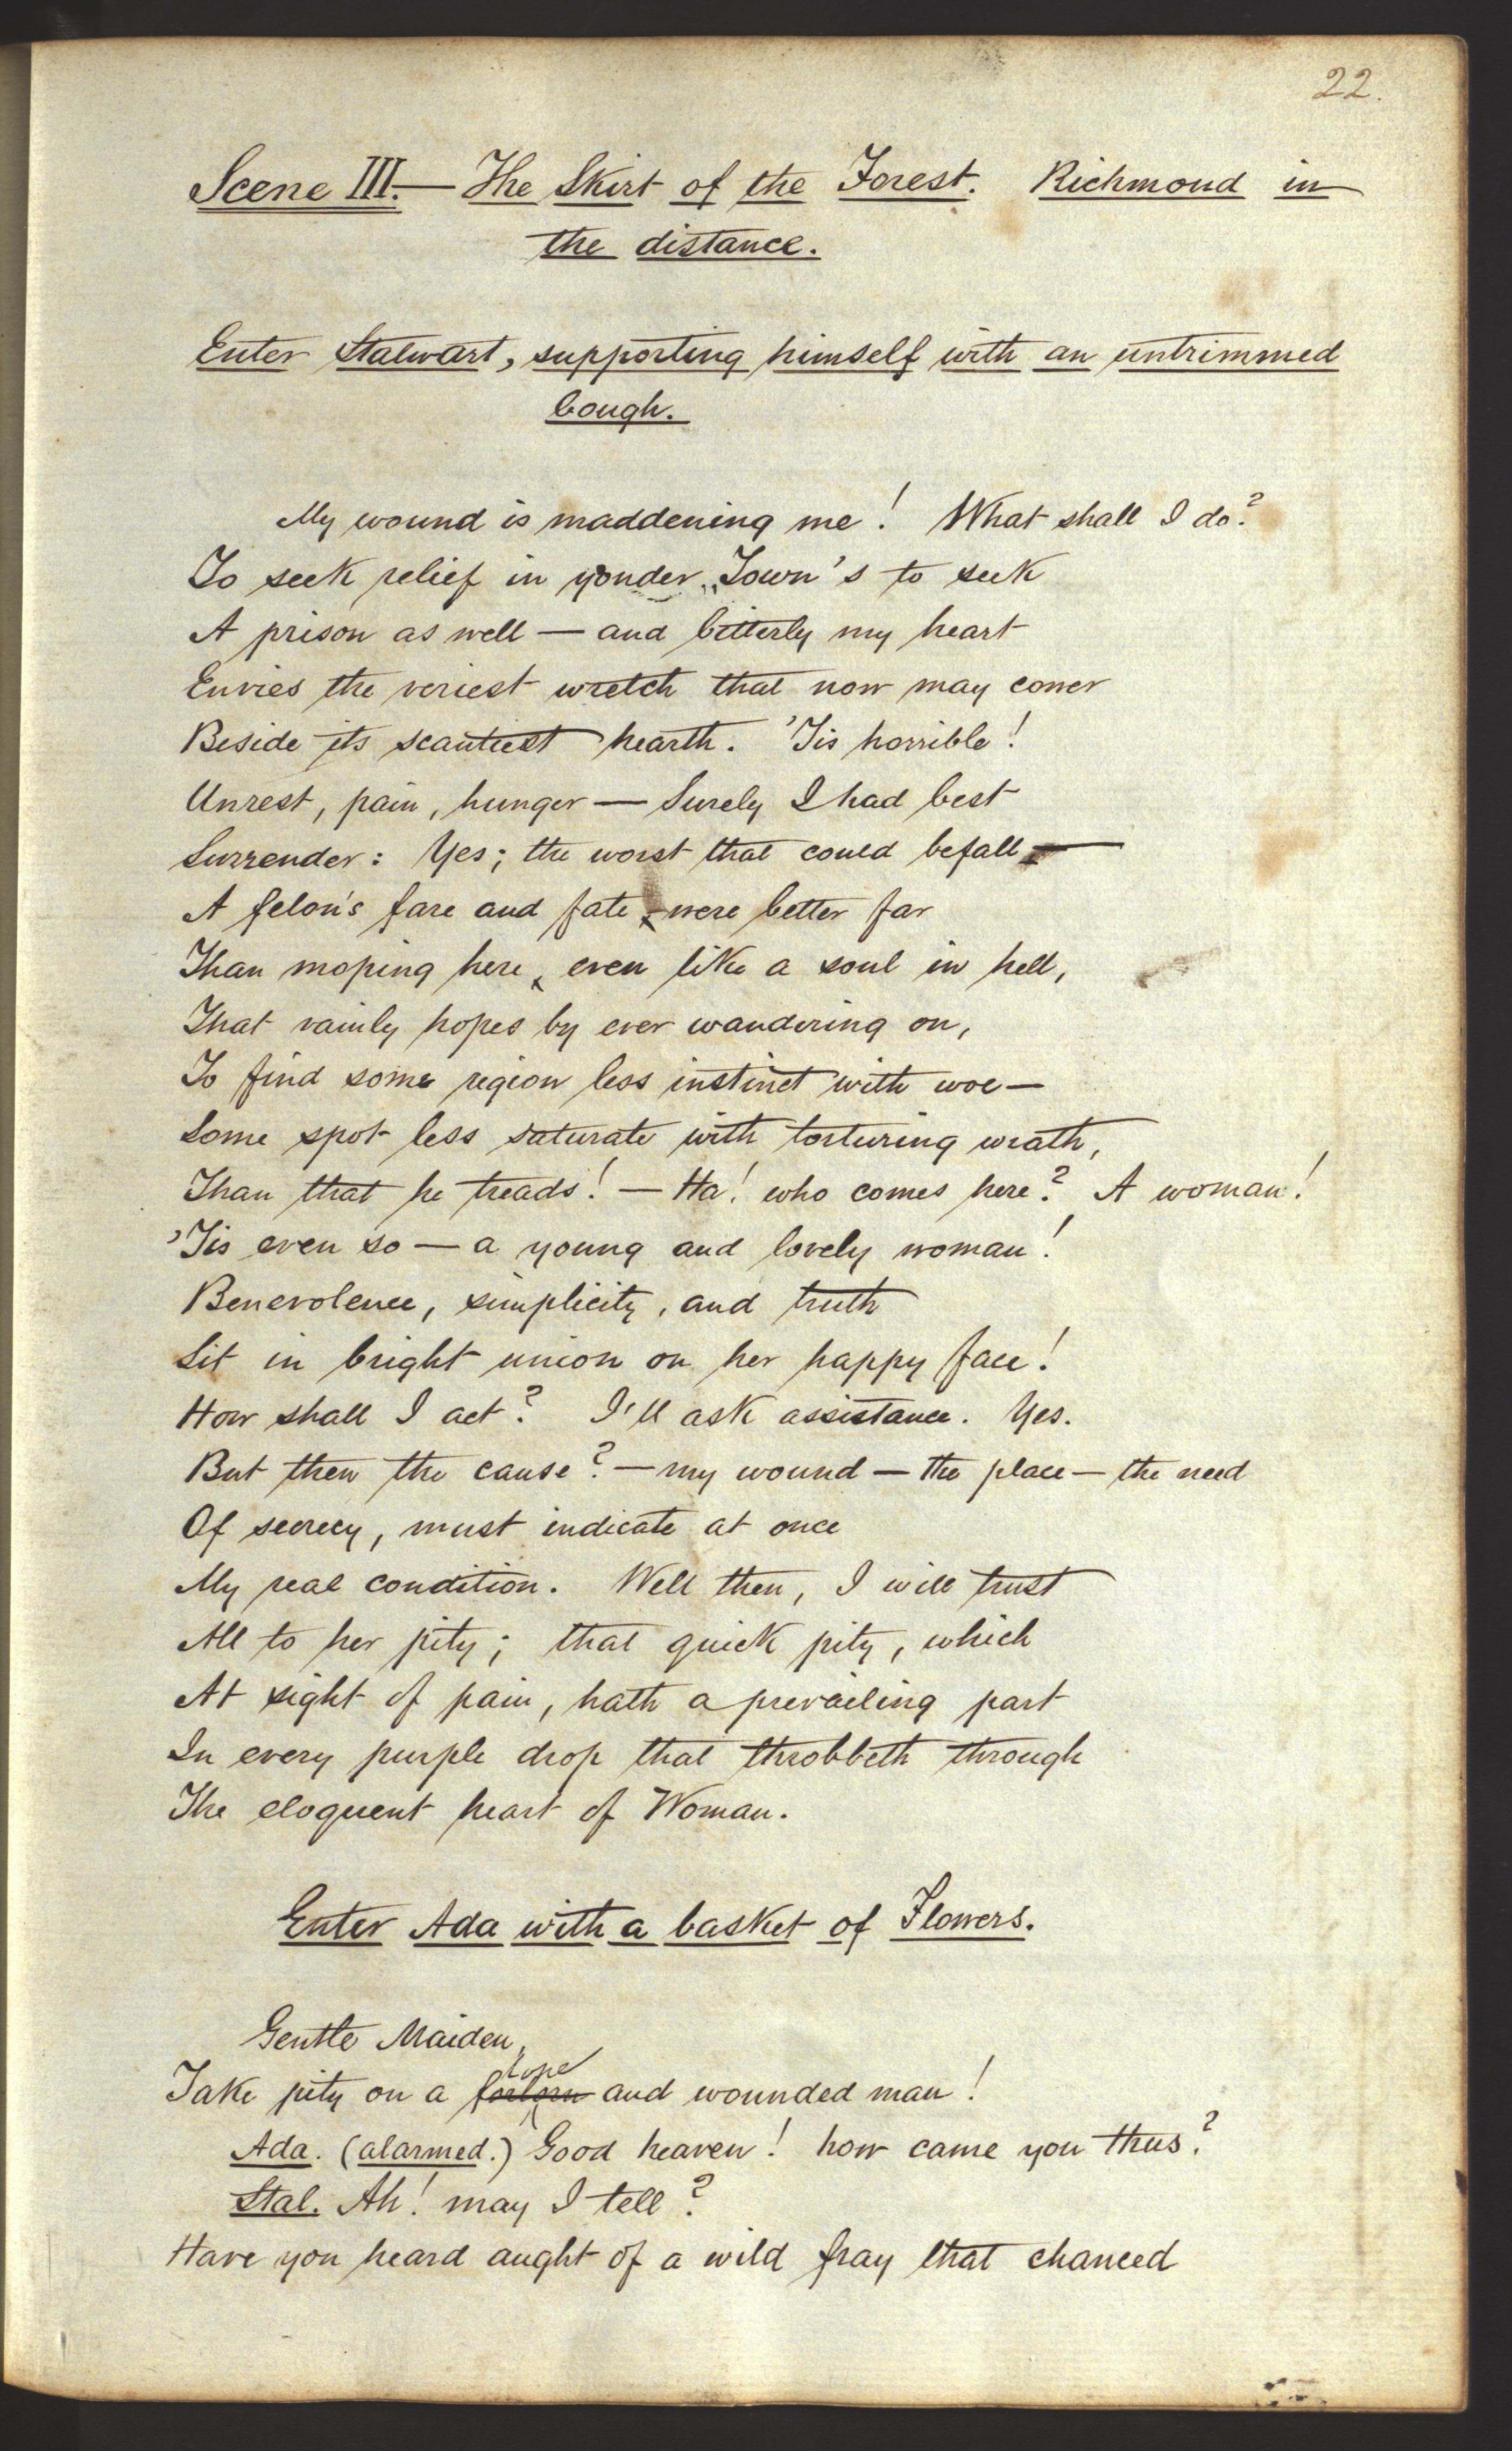 22.
Scene III.— The Skirt of the Forest. Richmond in
the distance.
Enter Stalwart, supporting himself with an untrimmed
bough.
My wound is maddening me! What shall I do?
To seek relief in yonder Town's to seek
A prison as well — and bitterly my heart
Envies the veriest wretch that now may cower
Beside its scantiest hearth. 'Tis horrible!
Unrest, pain, hunger — Surely I had best
Surrender: Yes; the worst that could befall —
A felon's fare and fate, were better far
Than moping here, even like a soul in hell,
That vainly hopes by ever wandering on,
To find some region less instinct with woe —
Some spot less saturate with torturing wrath,
Than that he treads! — Ha! who comes here? A woman!
'Tis even so — a young and lovely woman!
Benevolence, simplicity, and truth
Sit in bright union on her happy face!
How shall I act? I'll ask assistance. Yes.
But then the cause? — my wound — the place — the need
Of secrecy, must indicate at once
My real condition. Well then, I will trust
All to her pity; that quick pity, which
At sight of pain, hath a prevailing part
In every purple drop that throbbeth through
The eloquent heart of Woman.
Enter Ada with a basket of Flowers.
Gentle Maiden,
lone
Take pity on a forlorn and wounded man!
Ada. (alarmed.) Good heaven! how came you thus?
Stal. Ah! may I tell?
Have you heard aught of a wild fray that chanced